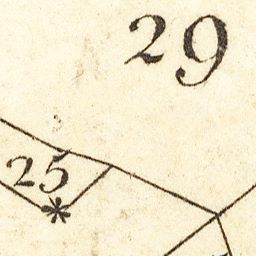 29
25
*